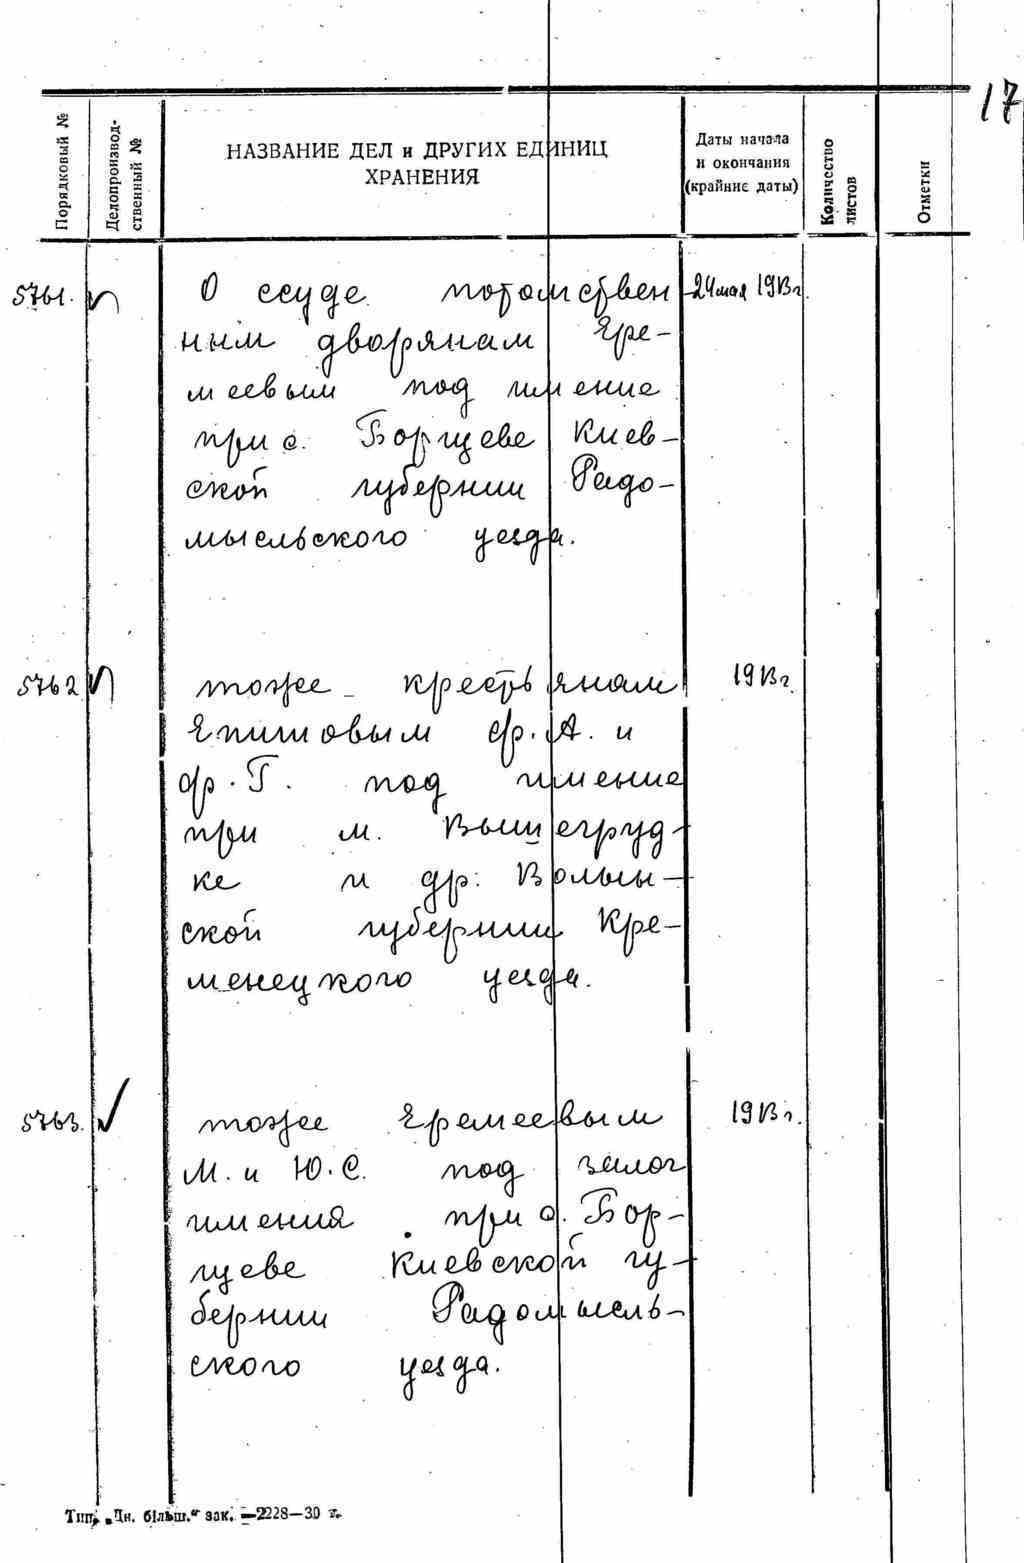 17
Порядковый №
Делопроизвод-
ственный №
НАЗВАНИЕ ДЕЛ и ДРУГИХ ЕДИНИЦ
ХРАНЕНИЯ
Даты начала
и окончания
(крайние даты)
Количество
листов
Отметки
5761. О ссуде потомствен 24 мая 1913 г.
ным дворянам Ере-
меевым под имение
при с. Борщеве Киев-
ской губернии Радо-
мысльского уезда.
5762 тоже крестьянам 1913 г.
Епишовым ф. А. и
ф. Г. под имение
при м. Вышегруд-
ке и др. Волын-
ской губернии Кре-
менецкого уезда.
5763. тоже Еремеевым 1913 г.
М. и Ю. С. под залог
имения при с. Бор-
щеве Киевской гу-
бернии Радомысль-
ского уезда.
Тип. „Дн. більш.“ зак. —2228—30 т.